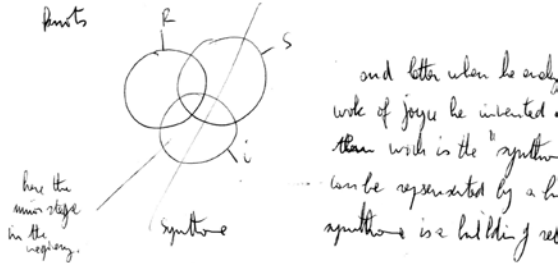 knots
R
S
i
here the
mirror stage
in the
synthome
and latter when he analy
work of joyce he invented
than work is the "synthom
can be represented by a
synthome is a building